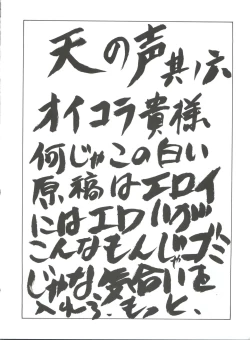 天の声其ノ六
オイコラ貴様
何じゃこの白い
原稿はエロイ
にはエロいが
こんなもんじゃゴミ
じゃな気合いを
入れろ、もっと、